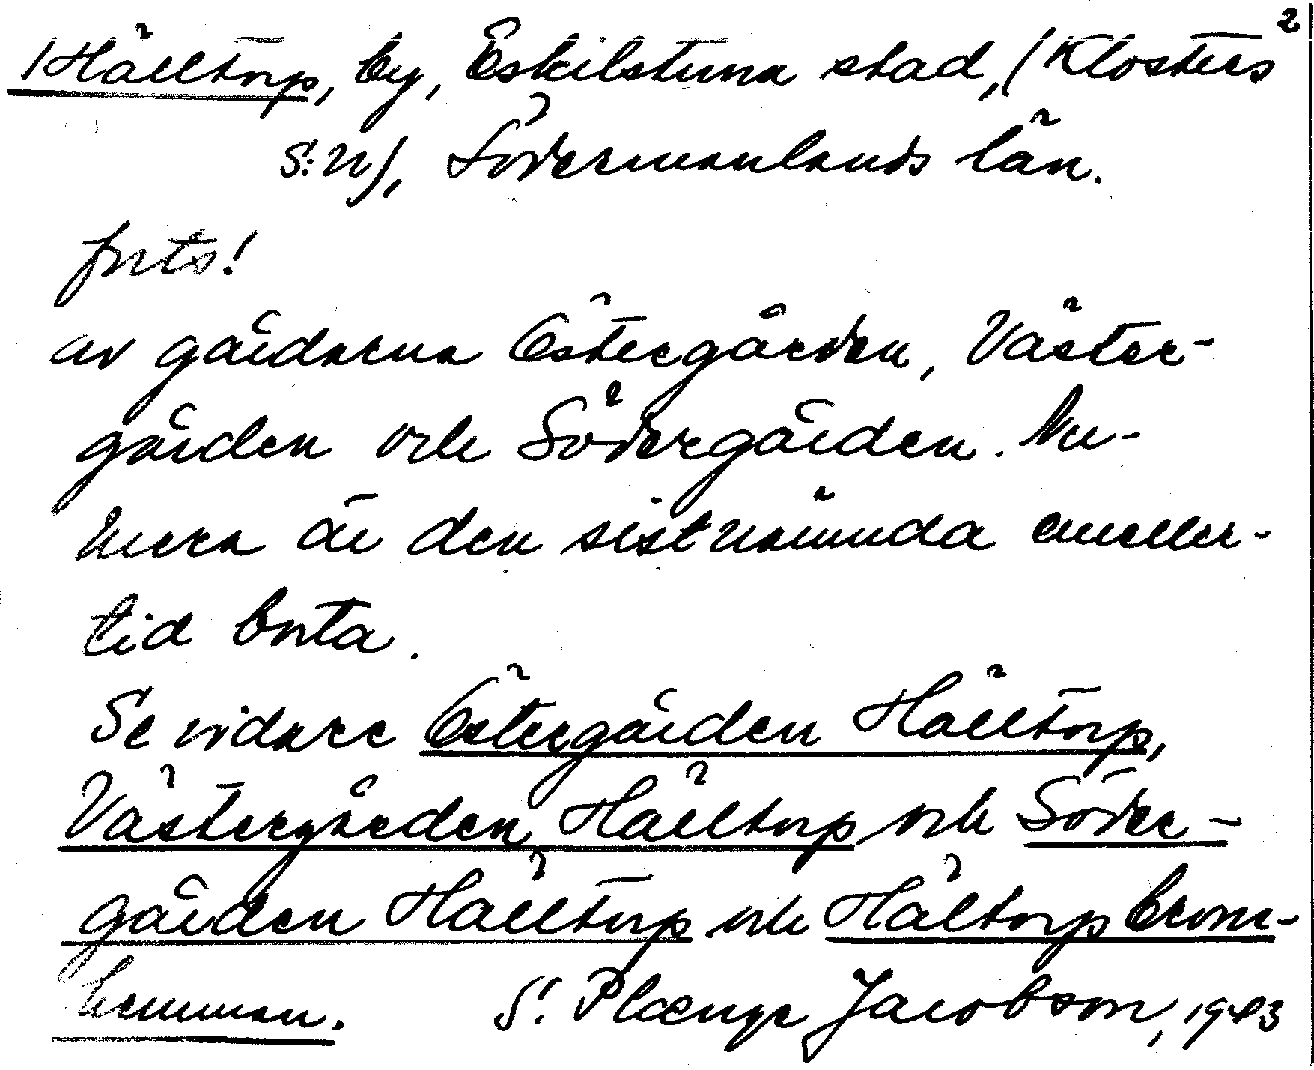 2
1 Hälltorp, by, Eskilstuna stad, (Klosters
S:n), Södermanlands län.
forts!
av gårdarna Östergården, Väster-
gården och Södergården. Nu-
mera är den sistnämnda emeller-
tid borta.
Se vidare Östergården Hälltorp,
Västergården, Hälltorp och Söder-
gården Hälltorp och Hältorp Crono-
hemman. S. Plænge Jacobson, 1943